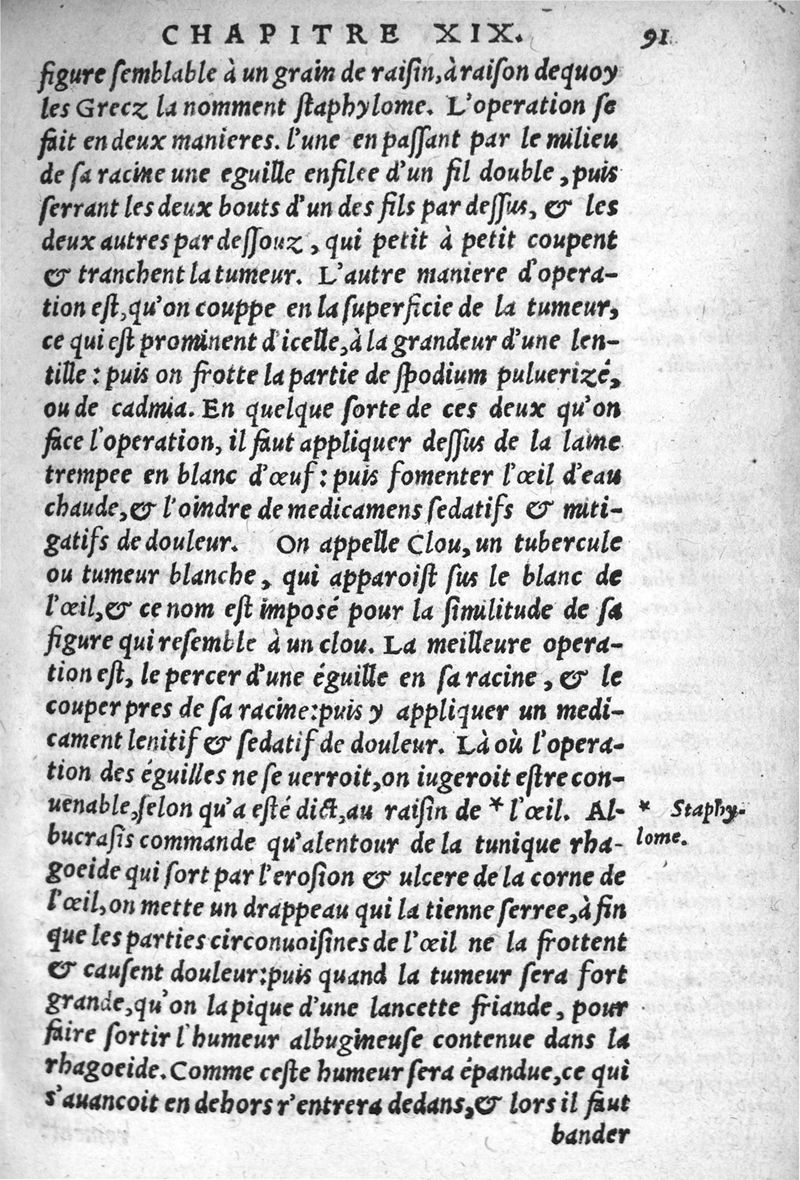 CHAPITRE XIX. 91
figure ſemblable à un grain de raiſin, à raiſon dequoy
les Grecz la nomment ſtaphylome. L'operation ſe
fait en deux manieres. l'une en paſſant par le milieu
de ſa racine une eguille enfilee d'un fil double, puis
ſerrant les deux bouts d'un des fils par deſſus, & les
deux autres par deſſouz, qui petit à petit coupent
& tranchent la tumeur. L'autre maniere d'opera-
tion eſt, qu'on couppe en la ſuperficie de la tumeur,
ce qui eſt prominent d'icelle, à la grandeur d'une len-
tille: puis on frotte la partie de ſpodium puluerizé,
ou de cadmia. En quelque ſorte de ces deux qu'on
face l'operation, il faut appliquer deſſus de la laine
trempee en blanc d'œuf: puis fomenter l'œil d'eau
chaude, & l'oindre de medicamens ſedatifs & miti-
gatifs de douleur. On appelle Clou, un tubercule
ou tumeur blanche, qui apparoiſt ſus le blanc de
l'œil, & ce nom eſt imposé pour la ſimilitude de ſa
figure qui reſemble à un clou. La meilleure opera-
tion eſt, le percer d'une éguille en ſa racine, & le
couper pres de ſa racine: puis y appliquer un medi-
cament lenitif & ſedatif de douleur. Là où l'opera-
tion des éguilles ne ſe uerroit, on iugeroit eſtre con-
uenable, ſelon qu'a eſté dict, au raiſin de * l'œil. Al-
* Staphy-
bucraſis commande qu'alentour de la tunique rha-
lome.
goeide qui ſort par l'eroſion & ulcere de la corne de
l'œil, on mette un drappeau qui la tienne ſerree, à fin
que les parties circonuoiſines de l'œil ne la frottent
& cauſent douleur: puis quand la tumeur ſera fort
grande, qu'on la pique d'une lancette friande, pour
faire ſortir l'humeur albugineuſe contenue dans la
rhagoeide. Comme ceſte humeur ſera épandue, ce qui
s'auancoit en dehors r'entrera dedans, & lors il faut
bander